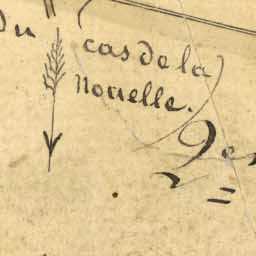 du (cas de la)
Nouelle.